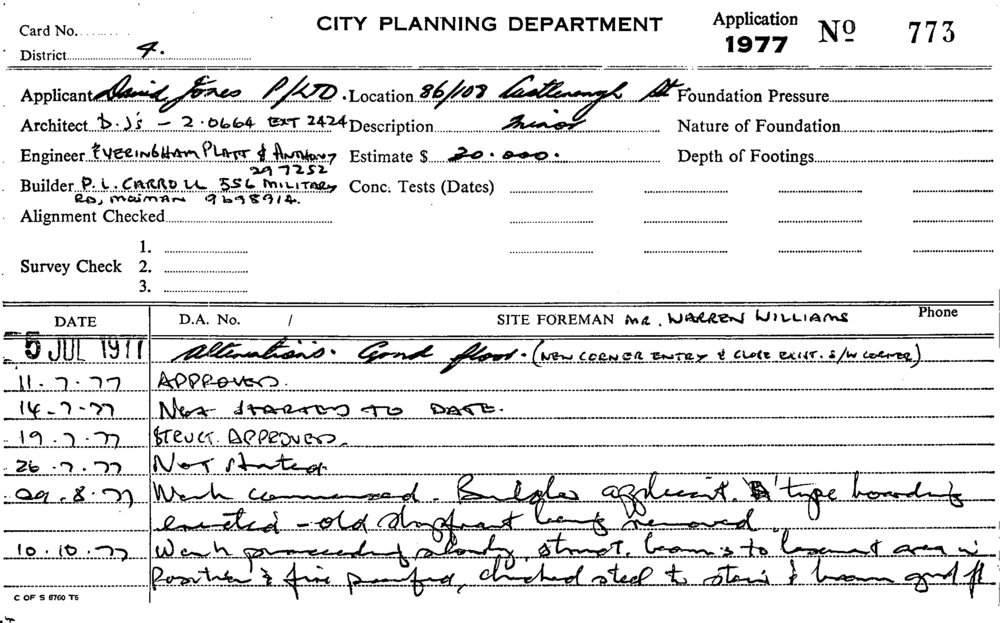 Card No.
CITY PLANNING DEPARTMENT
Application 1977 No 773
District 4.
Applicant David Jones P/LTD. Location 86/108 Castlereagh St Foundation Pressure
Architect D.J's - 2.0664 EXT 2424 Description minor Nature of Foundation
Engineer EVERINGHAM PLATT & ANTHONY 29 7252 Estimate $ 20.000. Depth of Footings
Builder P.L. CARROLL 556 MILITARY RD, MOSMAN 9698914. Conc. Tests (Dates)
Alignment Checked
1.
Survey Check 2.
3.
DATE D.A. No. / SITE FOREMAN MR. WARREN WILLIAMS Phone
5 JUL 1977 Alterations. Grnd floor. (NEW CORNER ENTRY & CLOSE EXIST. S/W CORNER)
11.7.77 APPROVED.
14-7-77 NOT STARTED TO DATE.
19.7.77 STRUCT. APPROVED.
26.7.77 NOT started.
29.8.77 Work commenced. Builder applicant. 'B' type hoarding
erected - old shopfront being removed.
10.10.77 Work proceeding slowly, struct. beams to basement area in
position & fire proofed, checked steel to stair & beam grnd fl
C OF S 6760 T6